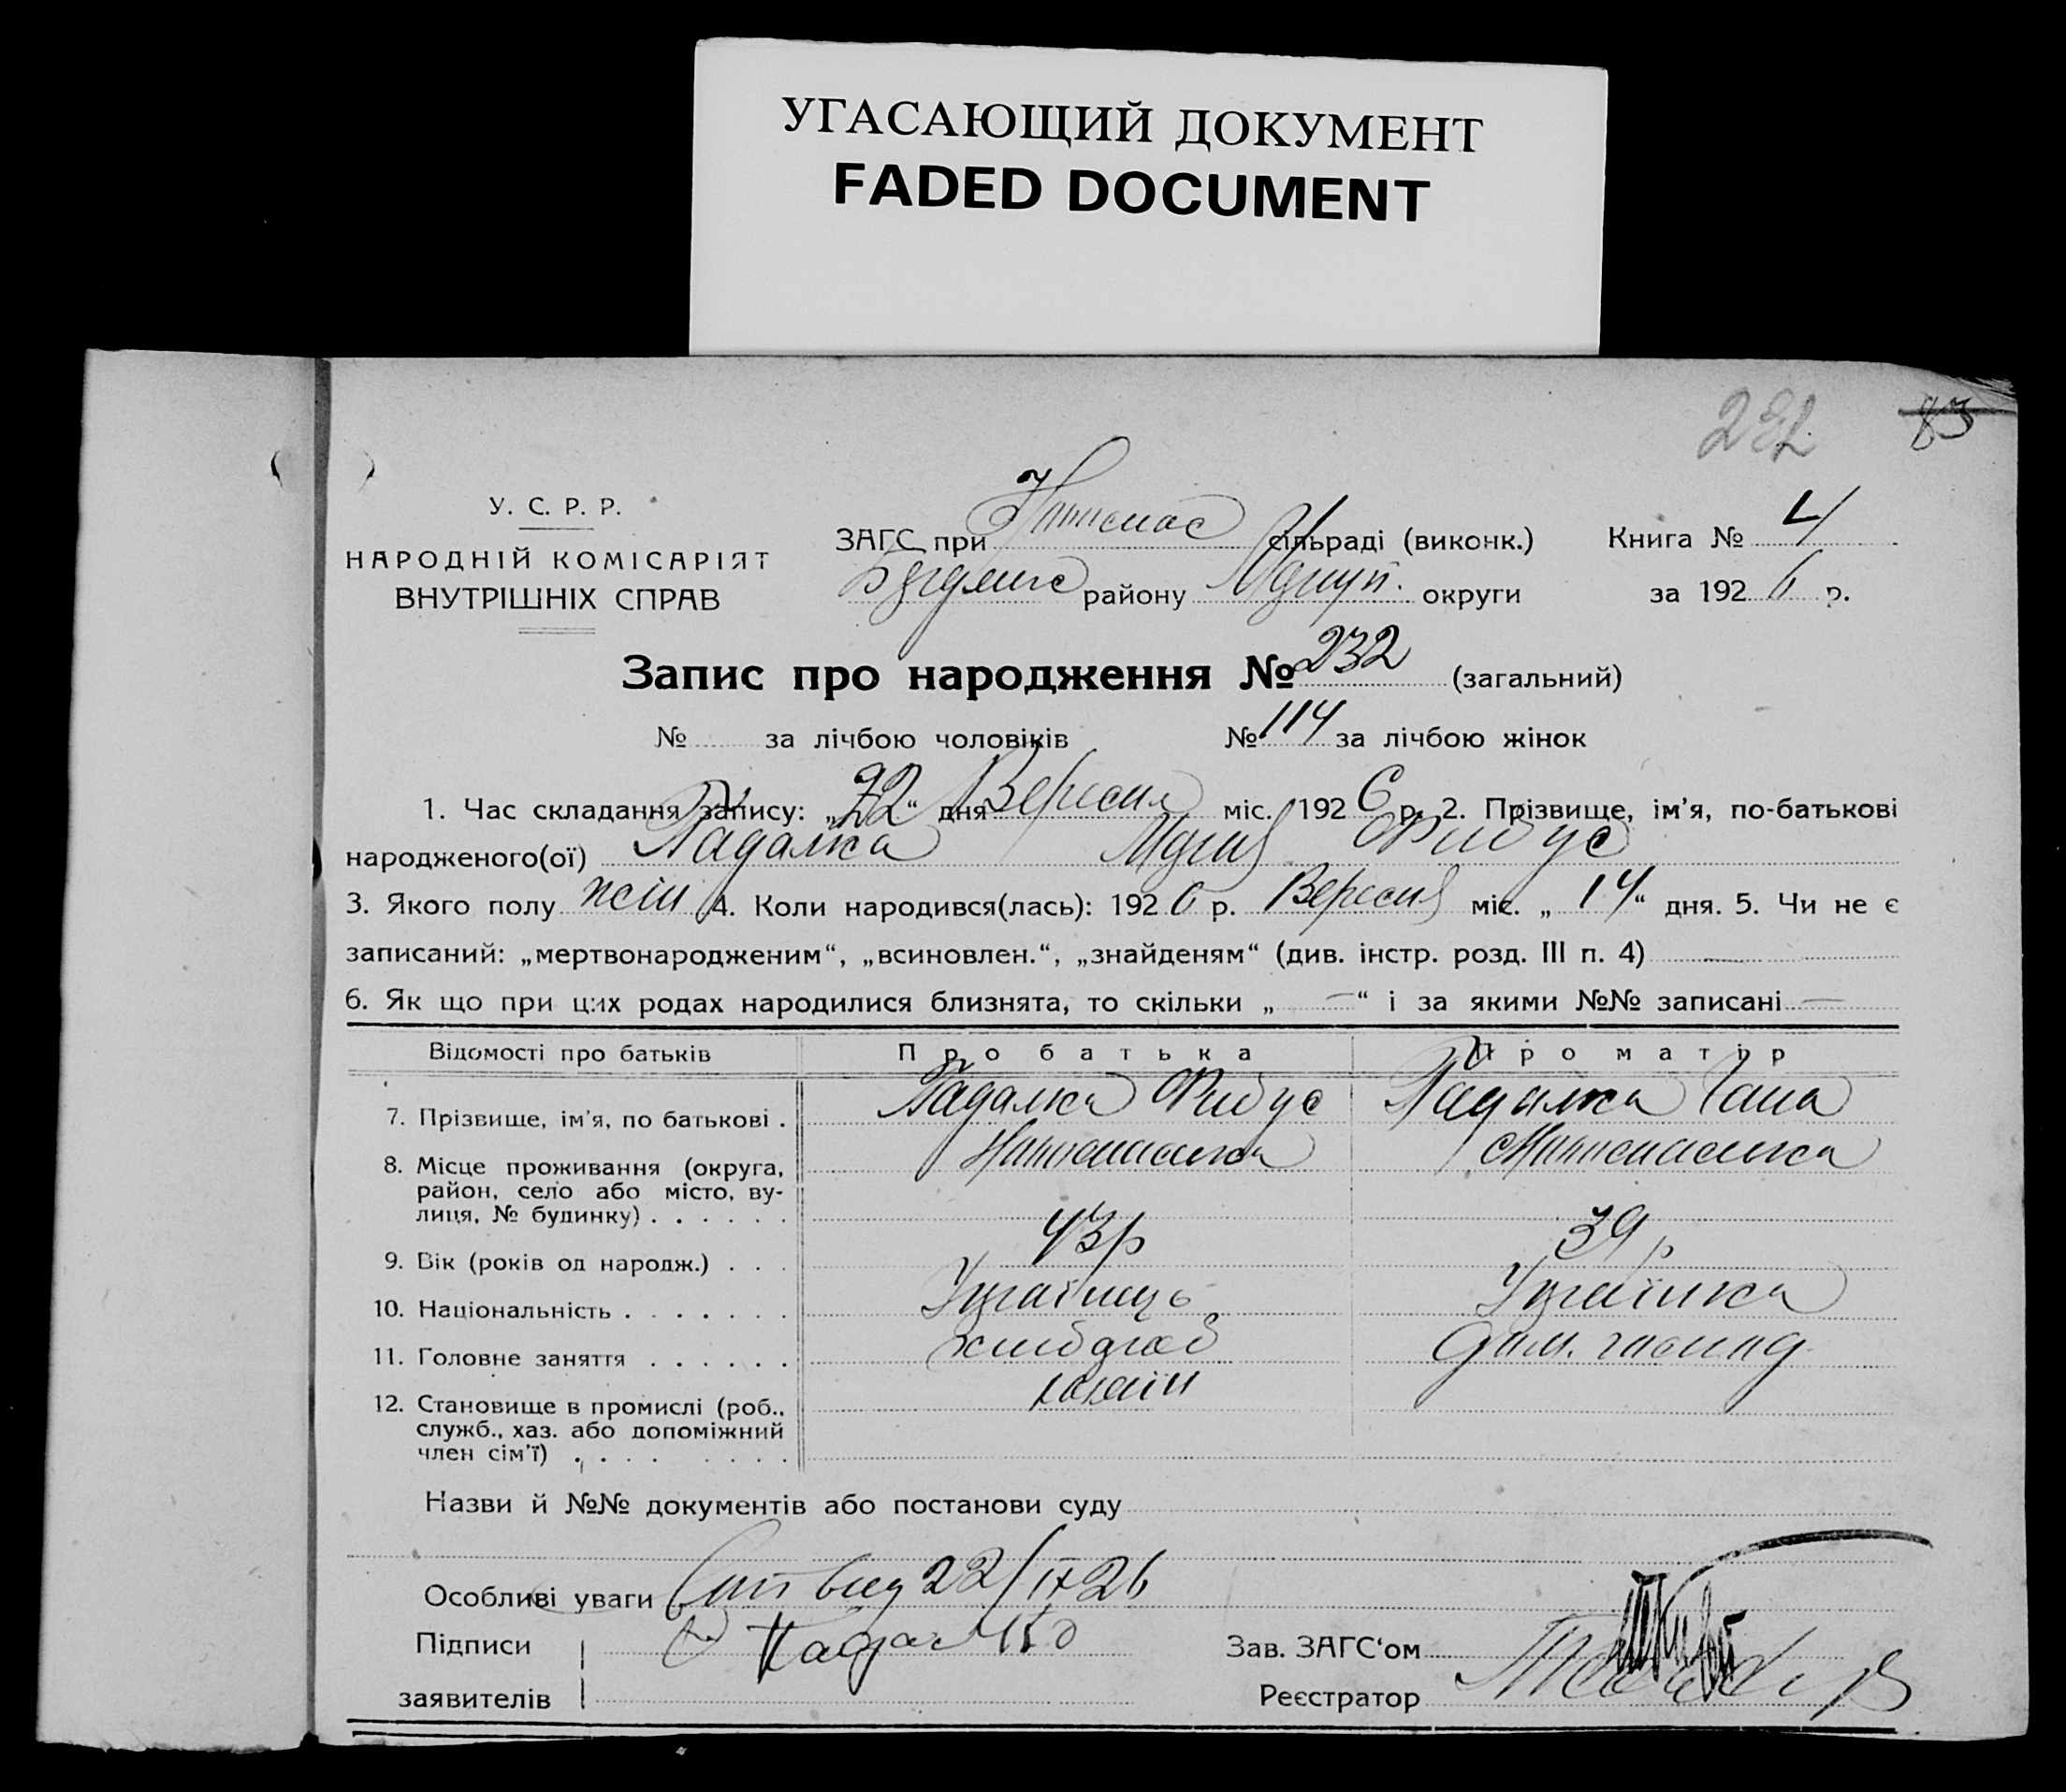 УГАСАЮЩИЙ ДОКУМЕНТ
FADED DOCUMENT
83
У. С. Р. Р.
НАРОДНІЙ КОМІСАРІЯТ
ВНУТРІШНІХ СПРАВ
ЗАГС при сільраді (виконк.)
району округи
Книга № 4
за 192 6 р.
Запис про народження № 232 (загальний)
№ за лічбою чоловіків № 114 за лічбою жінок
1. Час складання запису: „22“ дня Вересня міс. 192 6 р. 2. Прізвище, ім'я, по-батькові
народженого(ої) Падалка
3. Якого полу жін 4. Коли народився(лась): 192 6 р. Вересня міс. „14“ дня. 5. Чи не є
записаний: „мертвонародженим“, „всиновлен.“, „знайденям“ (див. інстр. розд. III п. 4) —
6. Як що при цих родах народилися близнята, то скільки „ — “ і за якими №№ записані —
Відомості про батьків Про батька Про матір
7. Прізвище, ім'я, по батькові . Падалка Падалка
8. Місце проживання (округа,
район, село або місто, ву-
лиця, № будинку) . . . . . .
9. Вік (років од народж.) . . . 43р 39р
10. Національність . . . . . . . Українець Українка
11. Головне заняття . . . . . . хлібороб дом. господ
12. Становище в промислі (роб.,
служб., хаз. або допоміжний
член сім'ї) . . . . . . . .
Назви й №№ документів або постанови суду
Особливі уваги 22/IX 26
Підписи
заявителів
Зав. ЗАГС'ом
Реєстратор